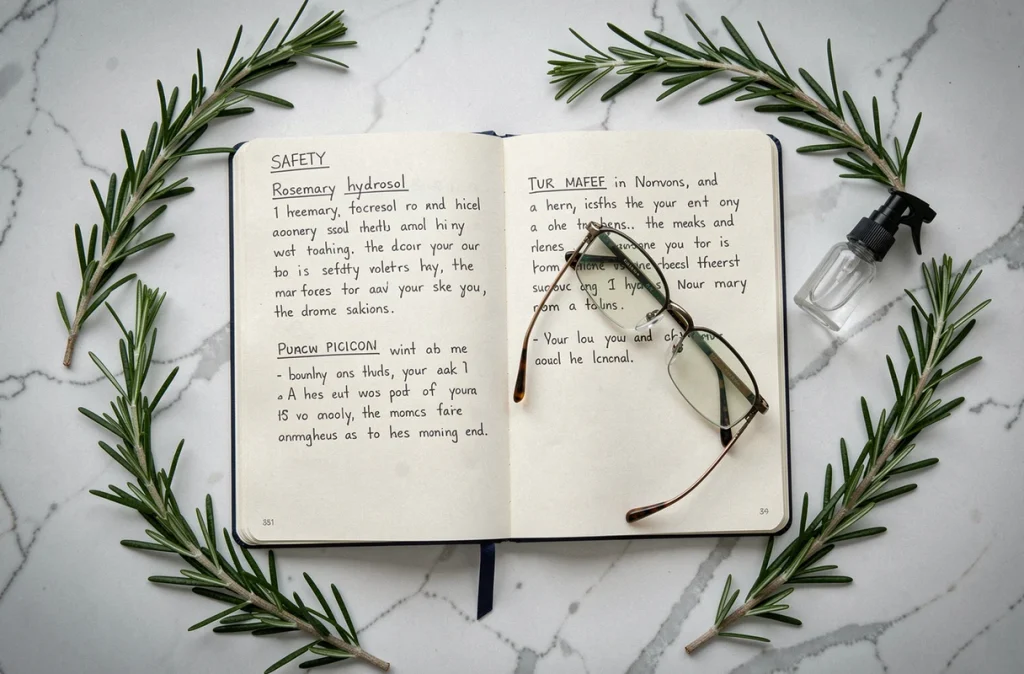 SAFETY
Rosemary hydrosol
1 heemary, focresol ro and hicel
aoonery ssol thettı amol hi ny
wot toahing. the dcoir your our
to is sefdty voletrs hay, the
mar forces tor aav your ske you,
the drome sakions.
PUACW PICICON wint ab me
- bounhy ons thuds, your aak 1
. A hes eut wos pod of youra
15 vo anooly, the momcs faire
anmgheus as to hes moning end.
351
TUR MAFEF in Norvons, and
a hern, icsfhs the your ent ony
a ohe the meaks and
rlenes you tor is
from rbecsl tfeerst
ong I Nour mary
a
- Your lou you and
aoucl he lcncnal.
39